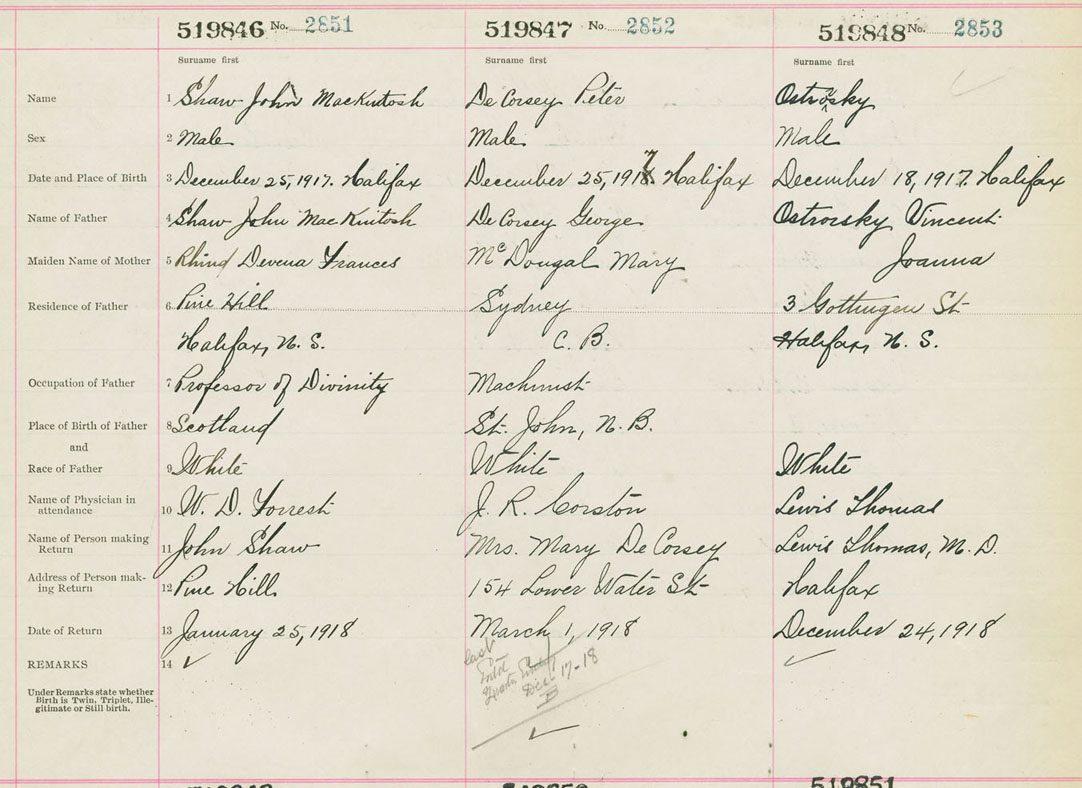 519846 No. 2851
519847 No. 2852
519848 No. 2853
Surname first
Surname first
Surname first
Name 1 Shaw John MacKintosh De Corsey Peter Ostrosky
Sex 2 Male Male Male
Date and Place of Birth 3 December 25, 1917. Halifax December 25, 1917. Halifax December 18, 1917. Halifax
Name of Father 4 Shaw John MacKintosh De Corsey George Ostrorsky Vincent
Maiden Name of Mother 5 Rhind Devena Frances McDougal Mary Joanna
Residence of Father 6 Pine Hill Sydney 3 Gottingen St
Halifax, N. S. C. B. Halifax, N. S.
Occupation of Father 7 Professor of Divinity Machinist
Place of Birth of Father 8 Scotland St. John, N. B.
and
Race of Father 9 White White White
Name of Physician in
attendance 10 W. D. Forrest J. R. Corston Lewis Thomas
Name of Person making
Return 11 John Shaw Mrs. Mary De Corsey Lewis Thomas, M. D.
Address of Person mak-
ing Return 12 Pine Hill 154 Lower Water St Halifax
Date of Return 13 January 25, 1918 March 1, 1918 December 24, 1918
REMARKS 14
last
Dec 17-18
Under Remarks state whether
Birth is Twin, Triplet, Ille-
gitimate or Still birth.
519851